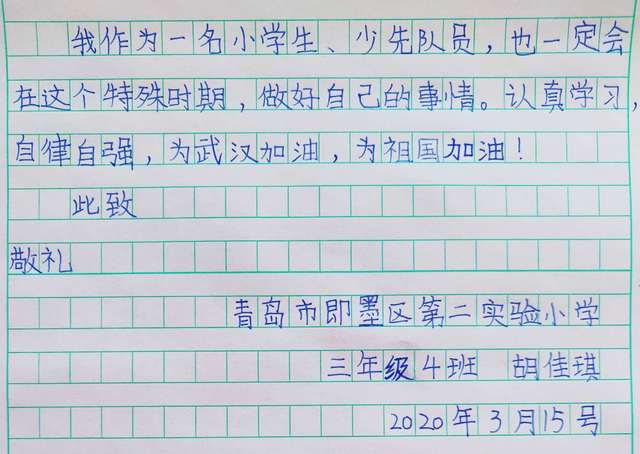 我作为一名小学生、少先队员，也一定会
在这个特殊时期，做好自己的事情。认真学习，
自律自强，为武汉加油，为祖国加油！
此致
敬礼
青岛市即墨区第二实验小学
三年级4班 胡佳琪
2020年3月15号